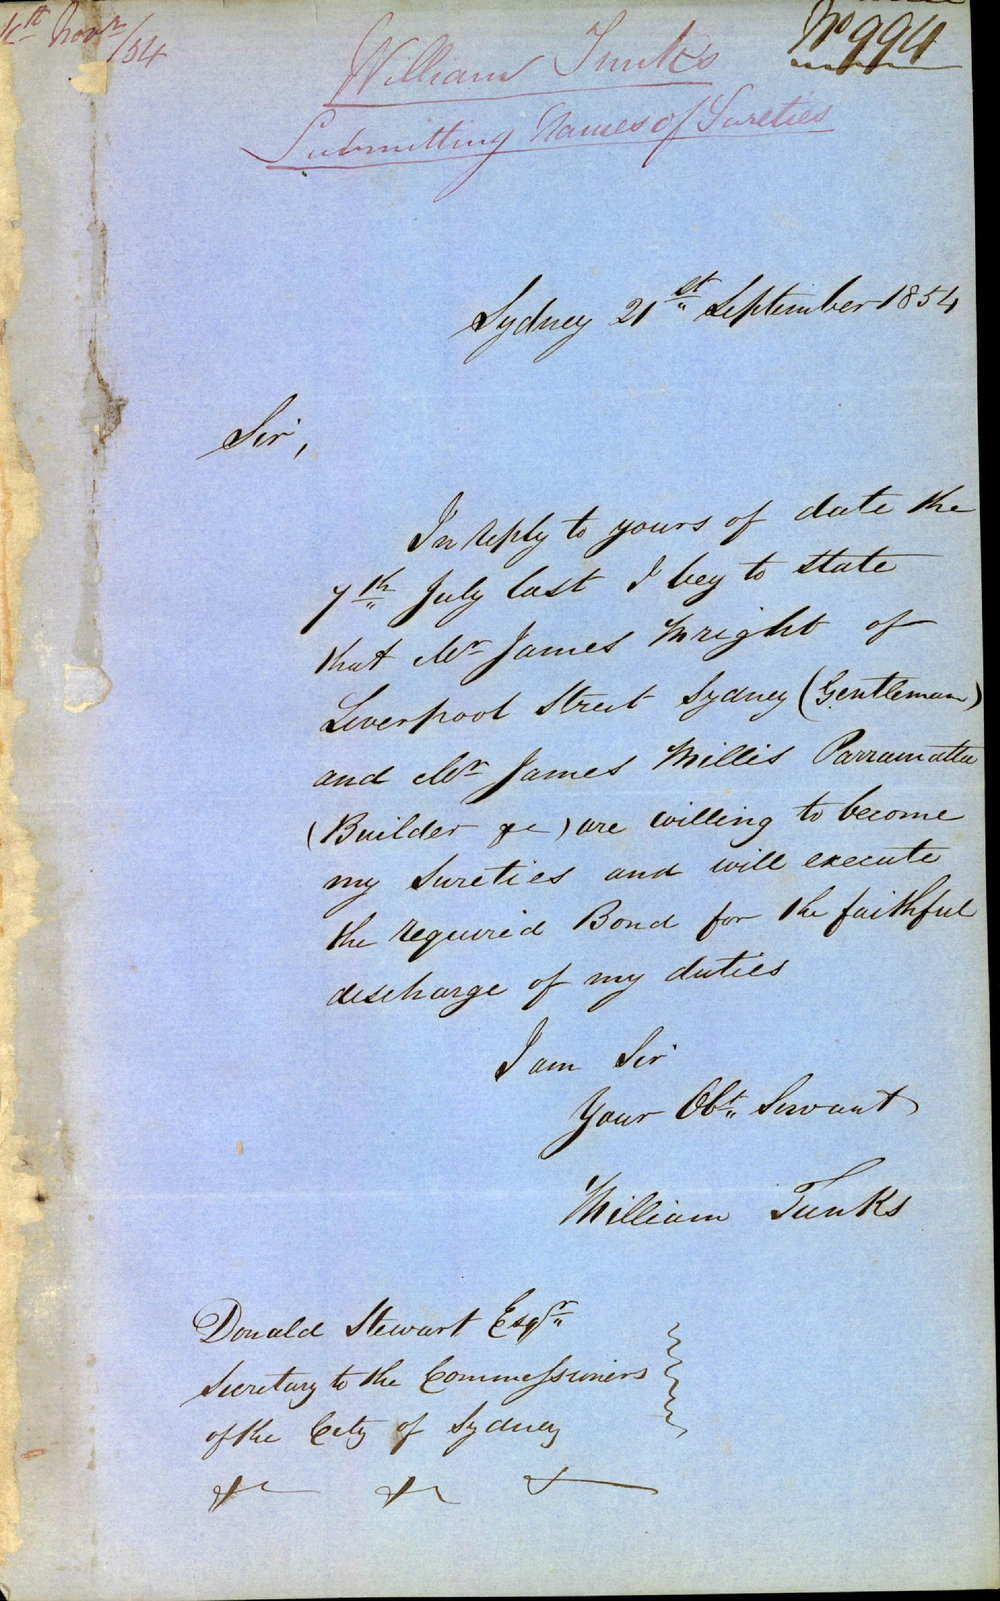 Novr /54
No 994
William Tunks
Submitting Names of Sureties
Sydney 21st September 1854
Sir,
In reply to yours of date the
7th July last I beg to state
that Mr James Wright of
Liverpool Street Sydney (Gentleman)
and Mr James Willis Parramatta
(Builder &c) are willing to become
my Sureties and will execute
the required Bond for the faithful
discharge of my duties
I am Sir
Your Obt Servant
William Tunks
Donald Stewart Esqr
Secretary to the Commissioners
of the City of Sydney